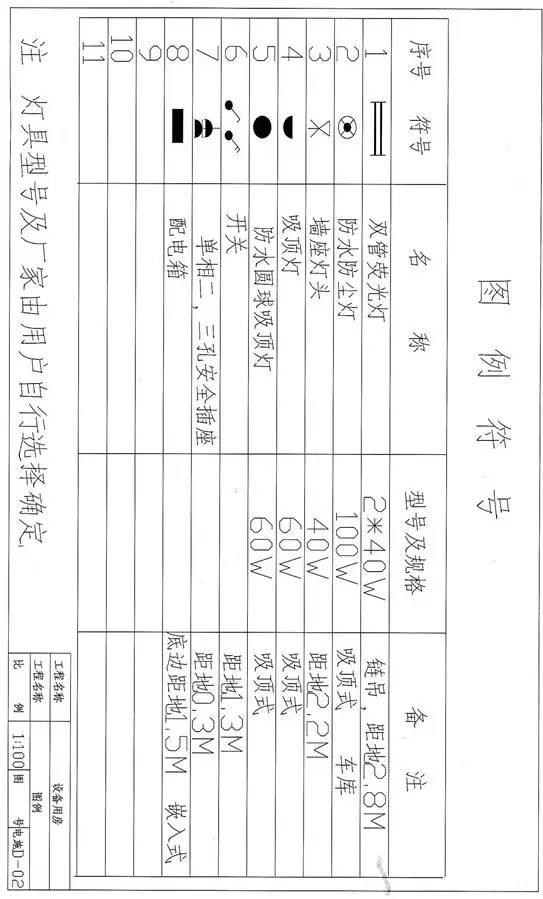 图例符号
序号 符号 名称 型号及规格 备注
1 双管荧光灯 2*40W 链吊，距地2,8M
2 防水防尘灯 100W 吸顶式 车库
3 墙座灯头 40W 距地2,2M
4 吸顶灯 60W 吸顶式
5 防水圆球吸顶灯 60W 吸顶式
6 开关 距地1,3M
7 单相二，三孔安全插座 距地0,3M
8 配电箱 底边距地1,5M 嵌入式
9
10
11
注 灯具型号及厂家由用户自行选择确定,
工程名称 设备用房
工程名称 图例
比例 1:100 图号 电施D-02